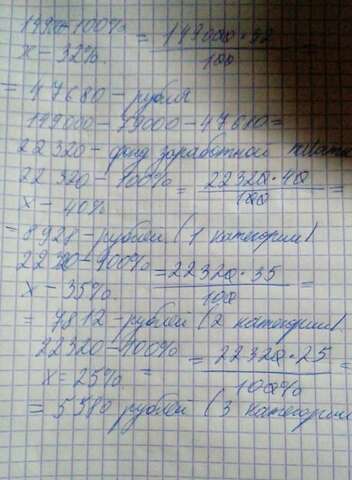 149000-100% = 149000·32
x-32%. 100
= 47680-рубля
149000-79000-47680=
22320-фонд заработной платы
22320-100% = 22320·40 =
x-40% 100
=8928-рублей (1 категории)
22320-100% = 22320·35 =
x-35%. 100
= 7812-рублей (2 категории)
22320-100% = = 22320·25 =
x=25% 100%
= 5580 рублей (3 категории